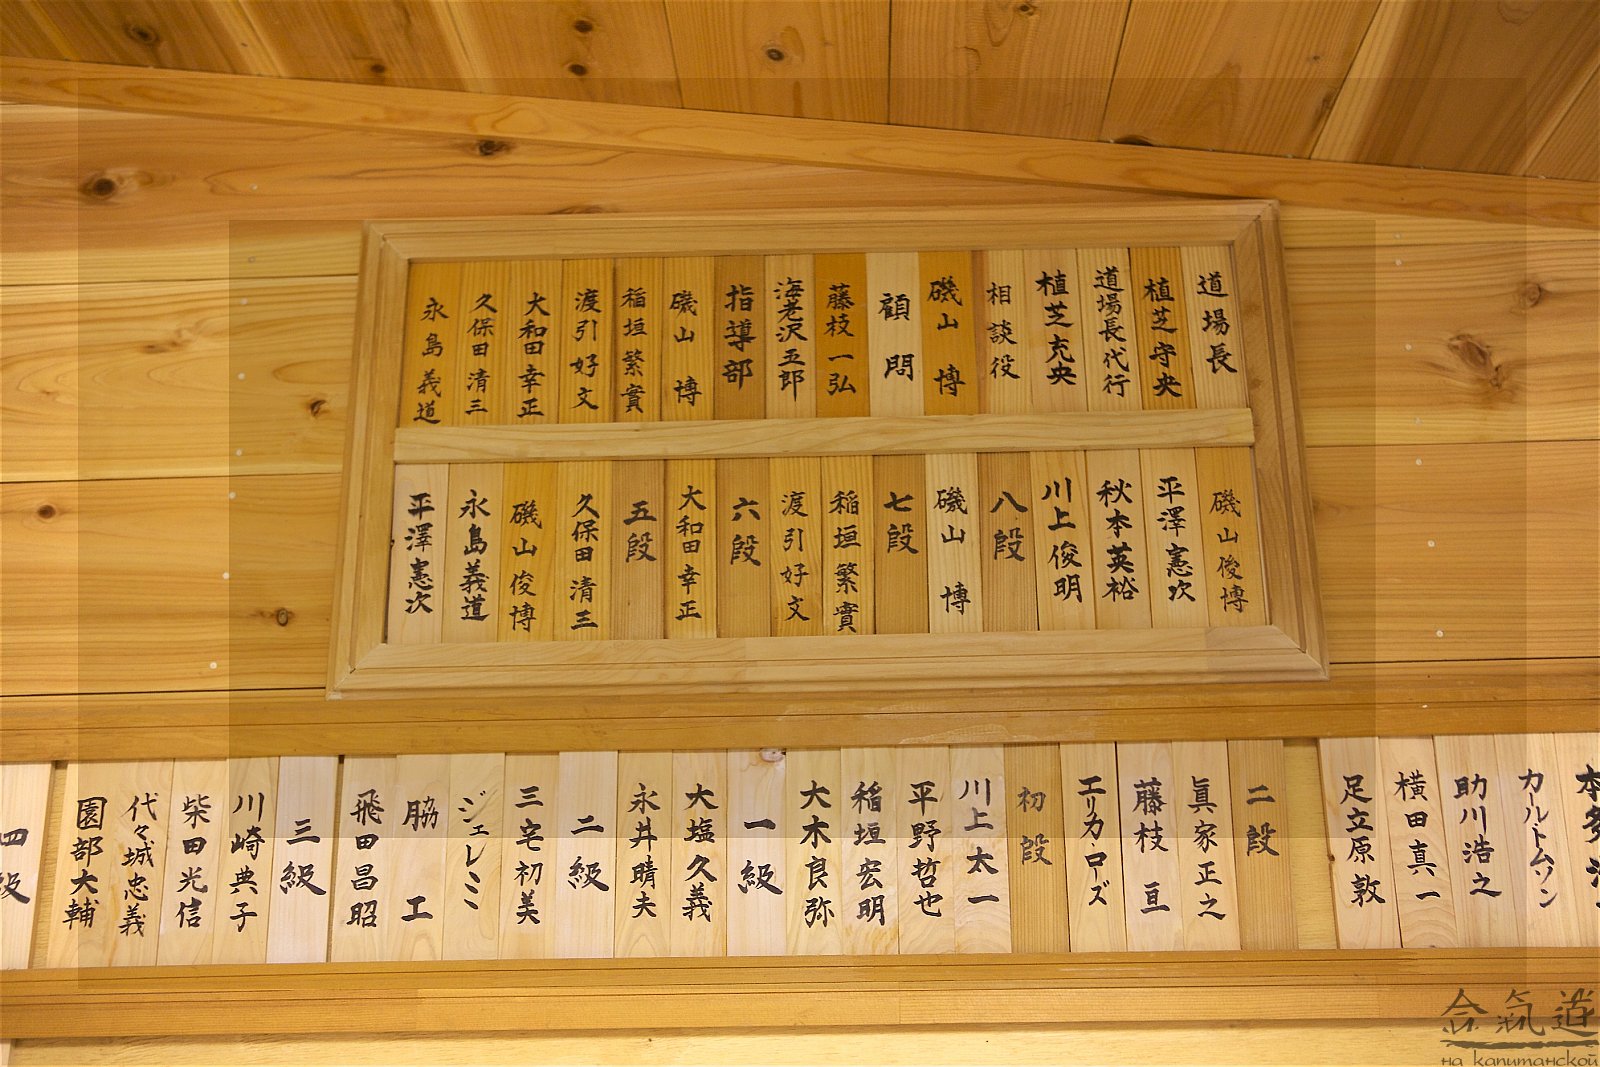 道場長
植芝守央
道場長代行
植芝充央
相談役
磯山 博
顧問
藤枝一弘
海老沢五郎
指導部
磯山 博
稲垣繁實
渡引好文
大和田幸正
久保田清三
永島義道
磯山俊博
平澤憲次
秋本英裕
川上俊明
八段
磯山 博
七段
稲垣繁實
渡引好文
六段
大和田幸正
五段
久保田清三
磯山俊博
永島義道
平澤憲次
カールトムソン
助川浩之
横田真一
足立原敦
二段
眞家正之
藤枝 亘
エリカ・ローズ
初段
川上太一
平野哲也
稲垣宏明
大木良弥
一級
大塩久義
永井晴夫
二級
三宅初美
ジェレミミ
脇 工
飛田昌昭
三級
川崎典子
柴田光信
代々城忠義
園部大輔
四級
合氣道
на капитанской